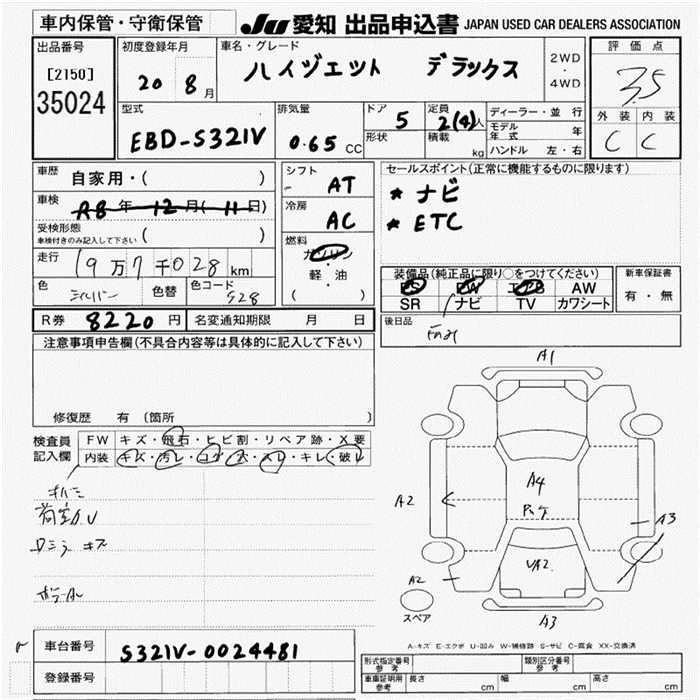 車内保管・守衛保管
JU 愛知 出品申込書 JAPAN USED CAR DEALERS ASSOCIATION
出品番号
[2150]
35024
初度登録年月
20 8月
車名・グレード
ハイゼット デラックス
2WD
・
4WD
評価点
3.5
外装 内装
C C
型式
EBD-S321V
排気量
0.65 CC
ドア 5
形状
定員 2(4)人
積載 kg
ディーラー・並行
モデル年式 年
ハンドル 左・右
車歴 自家用・( )
車検 R8年 12月(11日)
受検形態
車検付きのみ記入して下さい ( )
走行 19万7千028km
色 シルバー 色替 色コード S28
シフト AT
冷房 AC
燃料 ガソリン
軽・油
( )
セールスポイント(正常に機能するものに限ります)
* ナビ
* ETC
装備品(純正品に限り○をつけてください)
PS PW エアB AW
SR ナビ TV カワシート
新車保証書
有・無
後日品
R券 8220円 名変通知期限 月 日
注意事項申告欄(不具合内容等は具体的に記入して下さい)
修復歴 有 〔箇所 〕
検査員
記入欄
FW キズ・飛石・ヒビ割・リペア跡・X要
内装 キズ・汚レ・コゲ・穴・スレ・キレ・破レ
A1
A2
A4
A3
UA2
A2
スペア
A3
A-キズ E-エクボ U-凹み W-補修跡 S-サビ C-腐食 XX-交換済
車台番号 S321V-0024481
登録番号
型式指定番号
参考
類別区分番号
参考
車庫証明用
参考
長さ cm 幅 cm 高さ cm